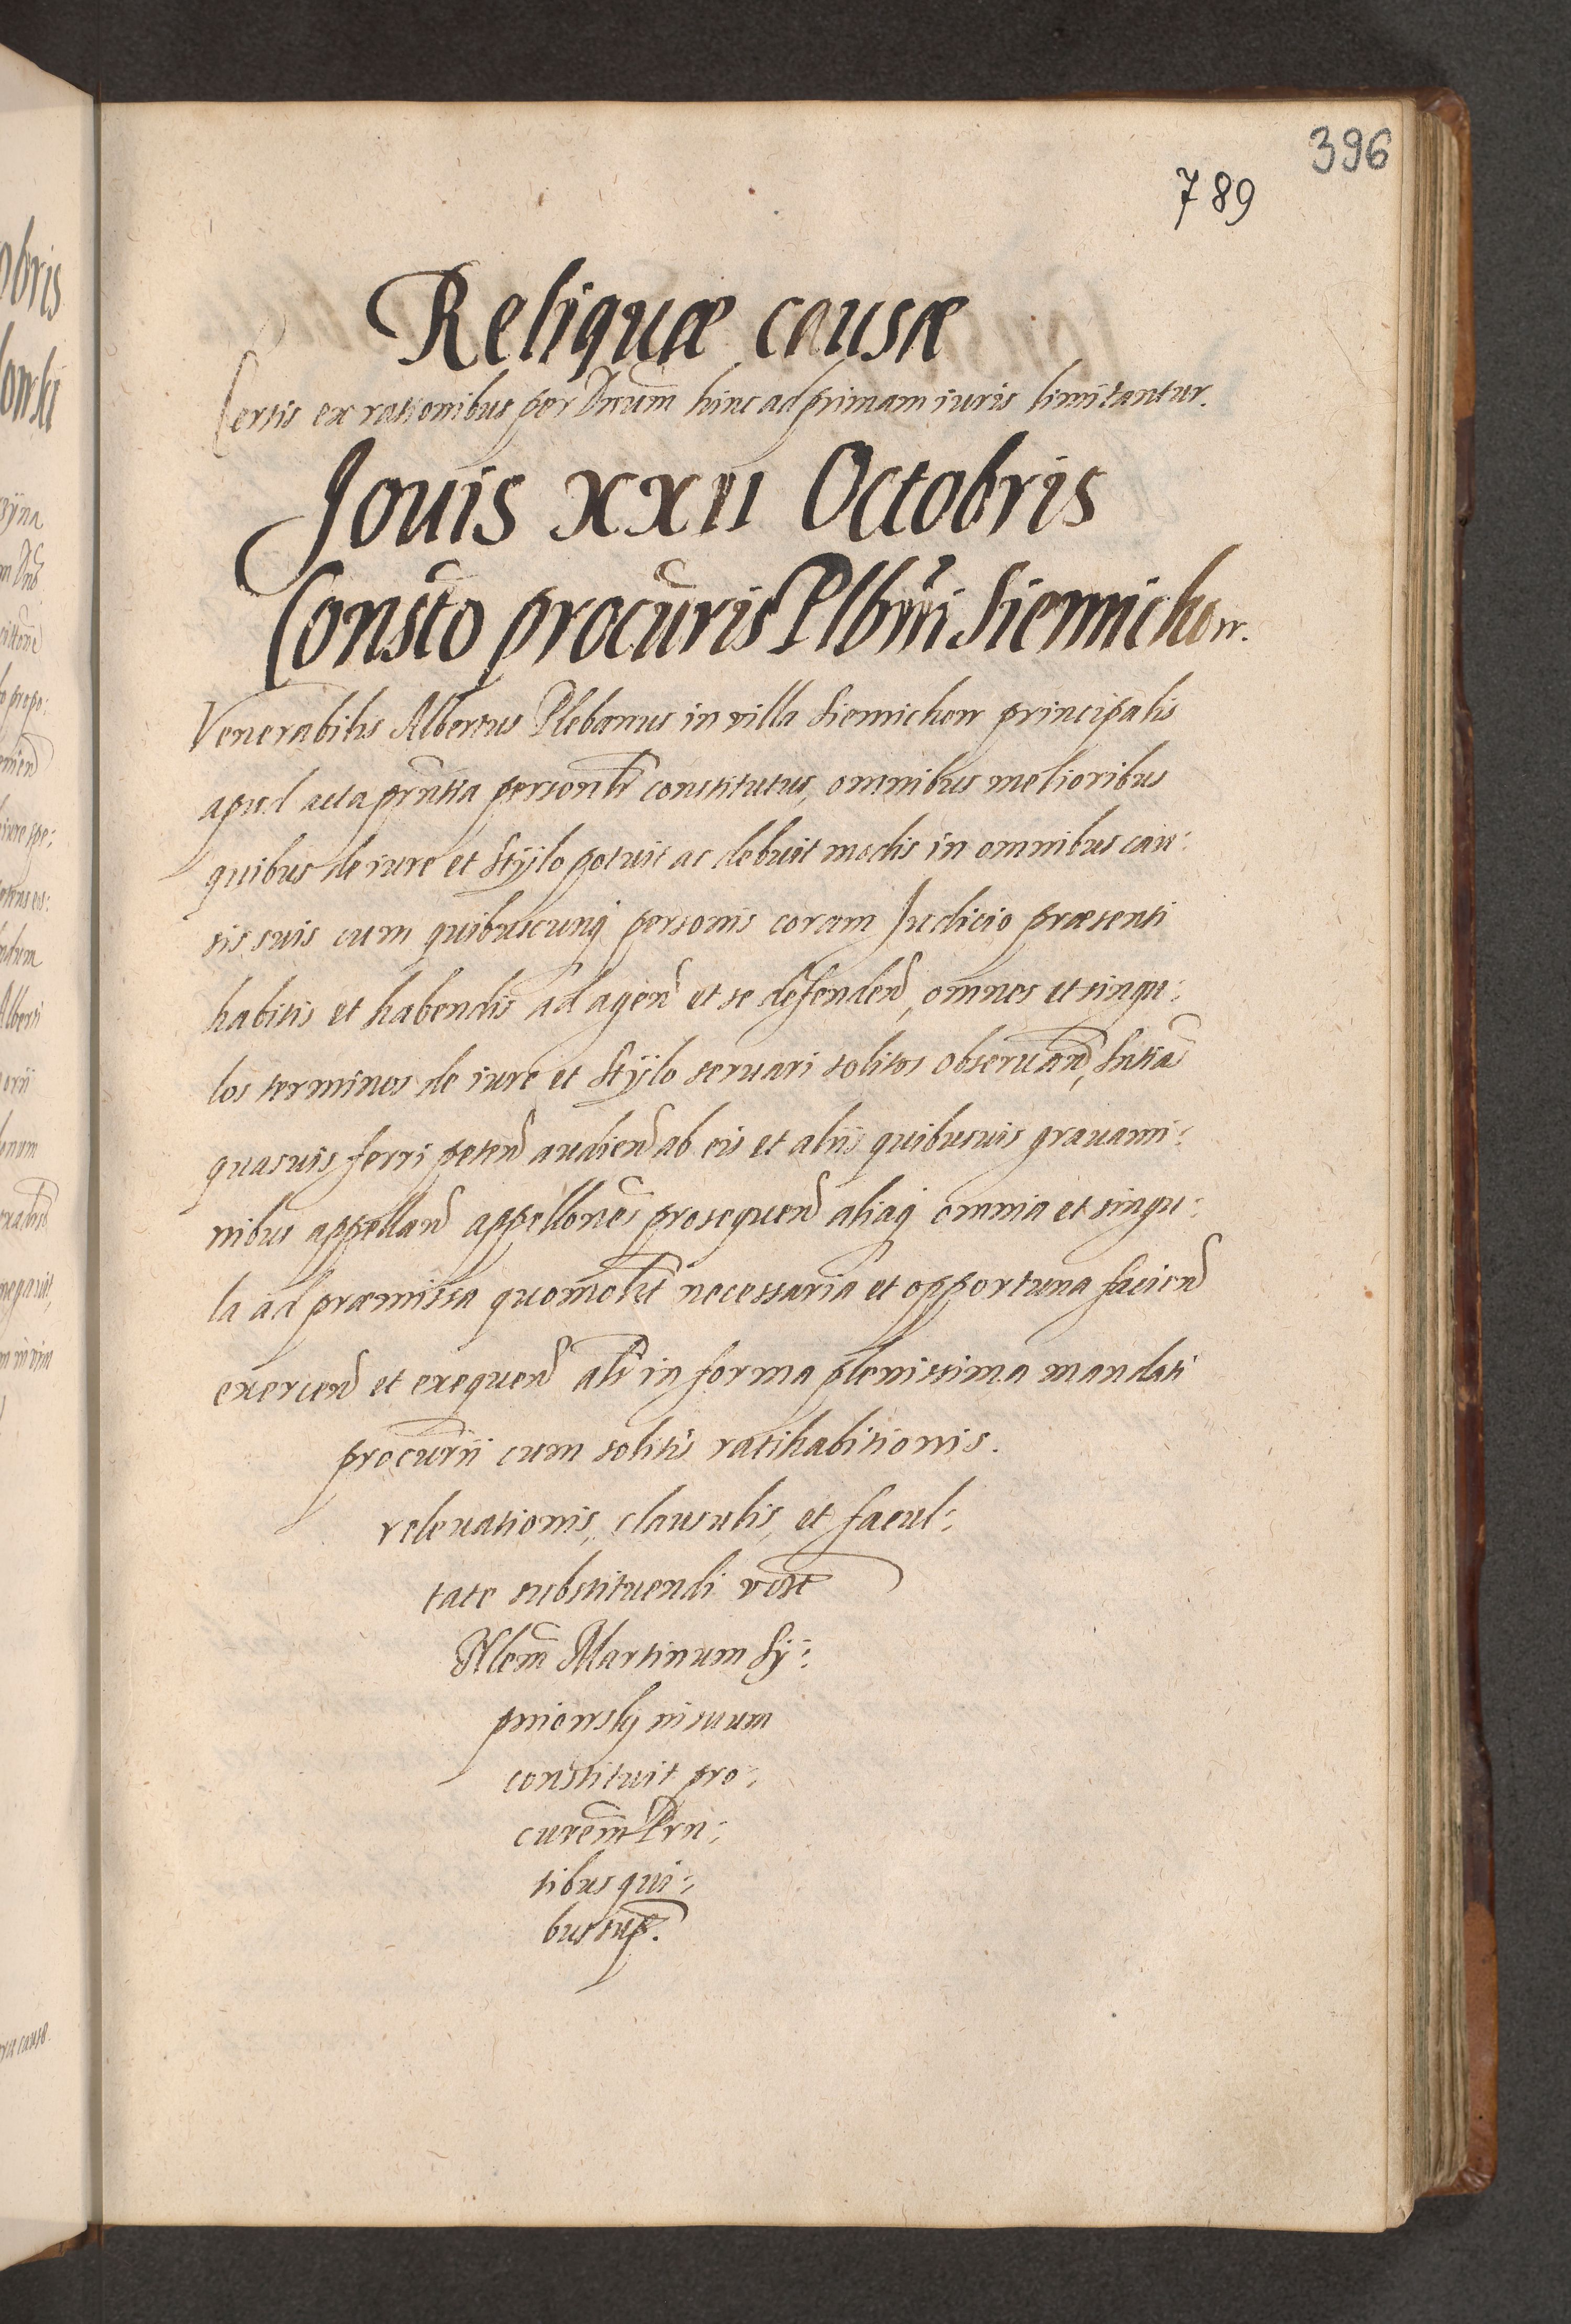 396
789
Reliquæ causæ
Certis ex rationibus per Dnum hinc ad primam iuris limitantur.
Jouis XXII Octobris
Consto procuris Plbni Siemichow.
Venerabilis Albertus Plebanus in villa Siemichow principalis
apud acta prntia personlr constitutus, omnibus melioribus
quibus de iure et Stÿlo potuit ac debuit modis in omnibus cau:
sis suis cum quibuscunq personis coram Judicio præsenti
habitis et habendis ad agen et se defenden, omnes et singu:
los terminos de iure et Stÿlo seruari solitos obseruan, Sntia
quasuis ferri peten audien ab eis et aliis quibusuis grauami:
nibus appellan appellones prosequen aliaq omnia et singu:
la ad præmissa quomolt necessaria et opportuna facien
exercen et exequen alr in forma plenissima mandati
procurii cum solitis ratihabitionis.
releuationis, clausulis, et facul:
tate substituendi
Nlem Martinum Sÿ:
pniowsky in suum
constituit pro:
curem Prn:
tibus qui:
bus sup.